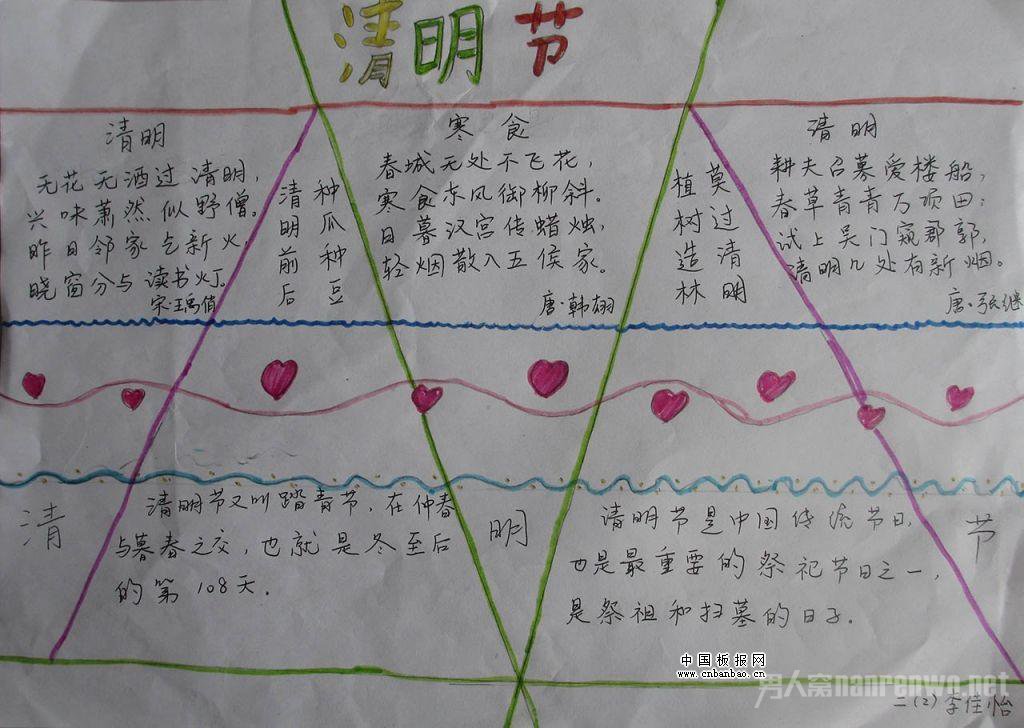 清明节
清明
无花无酒过清明，
兴味萧然似野僧。
昨日邻家乞新火，
晓窗分与读书灯。
宋·王禹偁
清明前后
种瓜种豆
寒食
春城无处不飞花，
寒食东风御柳斜。
日暮汉宫传蜡烛，
轻烟散入五侯家。
唐·韩翃
植树造林
莫过清明
清明
耕夫召募爱楼船，
春草青青万项田；
试上吴门窥郡郭，
清明几处有新烟。
唐·张继
清
清明节又叫踏青节，在仲春
与暮春之交，也就是冬至后
的第108天．
明
清明节是中国传统节日，
也是最重要的祭祀节日之一，
是祭祖和扫墓的日子．
节
中国板报网
www.cnbanbao.cn
男人窝nanrenwo.net
二(2)李佳怡